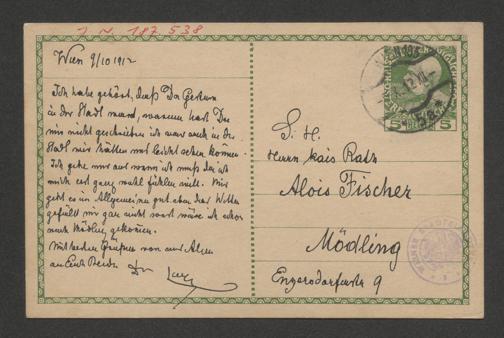 I. N. 187.538
Wien 9/10 1912
Ich habe gehört, daß Du Gestern
in der Stadt warst, warum hast Du
mir nicht geschrieben ich war auch in der
Stadt wir hätten uns leicht sehen können.
Ich gehe nur aus wenn ich muß da ich
mich erst ganz wohl fühlen will. Mir
geht es im Allgemeinen gut aber das Wetter
gefällt mir gar nicht sonst wäre ich schon
nach Mödling gekommen.
Mit besten Grüßen von uns Allen
an Euch Beide Dr
S. H.
Herrn kais Rath
Alois Fischer
Mödling
Enzersdorferstr 9
5 5